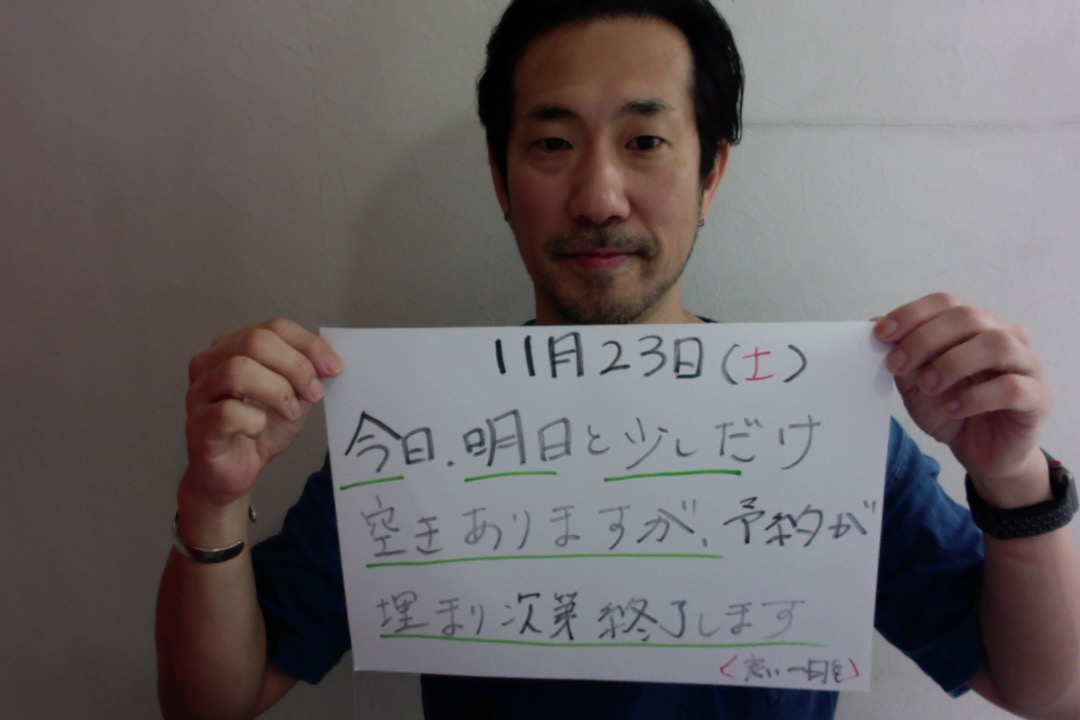 11月23日(土)
今日.明日と少しだけ
空きありますが、予約が
埋まり次第終了します
(良い一日を)